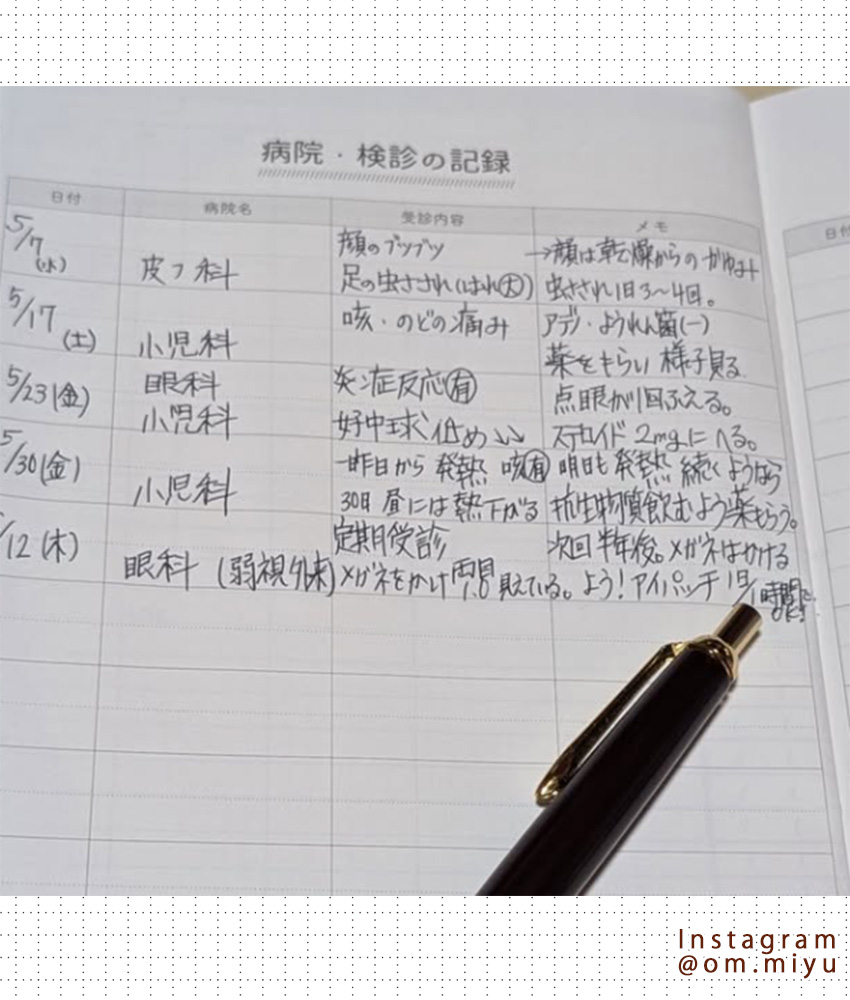 病院・検診の記録
日付 病院名 受診内容 メモ 日付
5/7(水) 皮フ科 顔のブツブツ →顔は乾燥からのかゆみ
足の虫さされ(はれ大) 虫さされ1日3~4回。
5/17(土) 小児科 咳・のどの痛み アデノ・ようれん菌(一)
薬をもらい様子見る
5/23(金) 眼科 炎症反応有 点眼が1回ふえる。
小児科 好中球低め↘↘ ステロイド2mgにへる。
5/30(金) 小児科 昨日から発熱 咳有 明日も発熱続くようなら
30日昼には熱下がる 抗生物質飲むよう薬もらう。
/12(木) 眼科(弱視外来) 定期受診 次回半年後。メガネはかける
メガネをかけ 見えている。 よう!アイパッチ1日/1時間
Instagram
@om.miyu